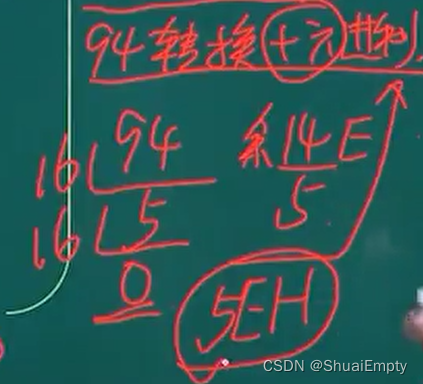 94转换十六进制
16 94 余14E
16 5 5
0
5EH
CSDN @ShuaiEmpty